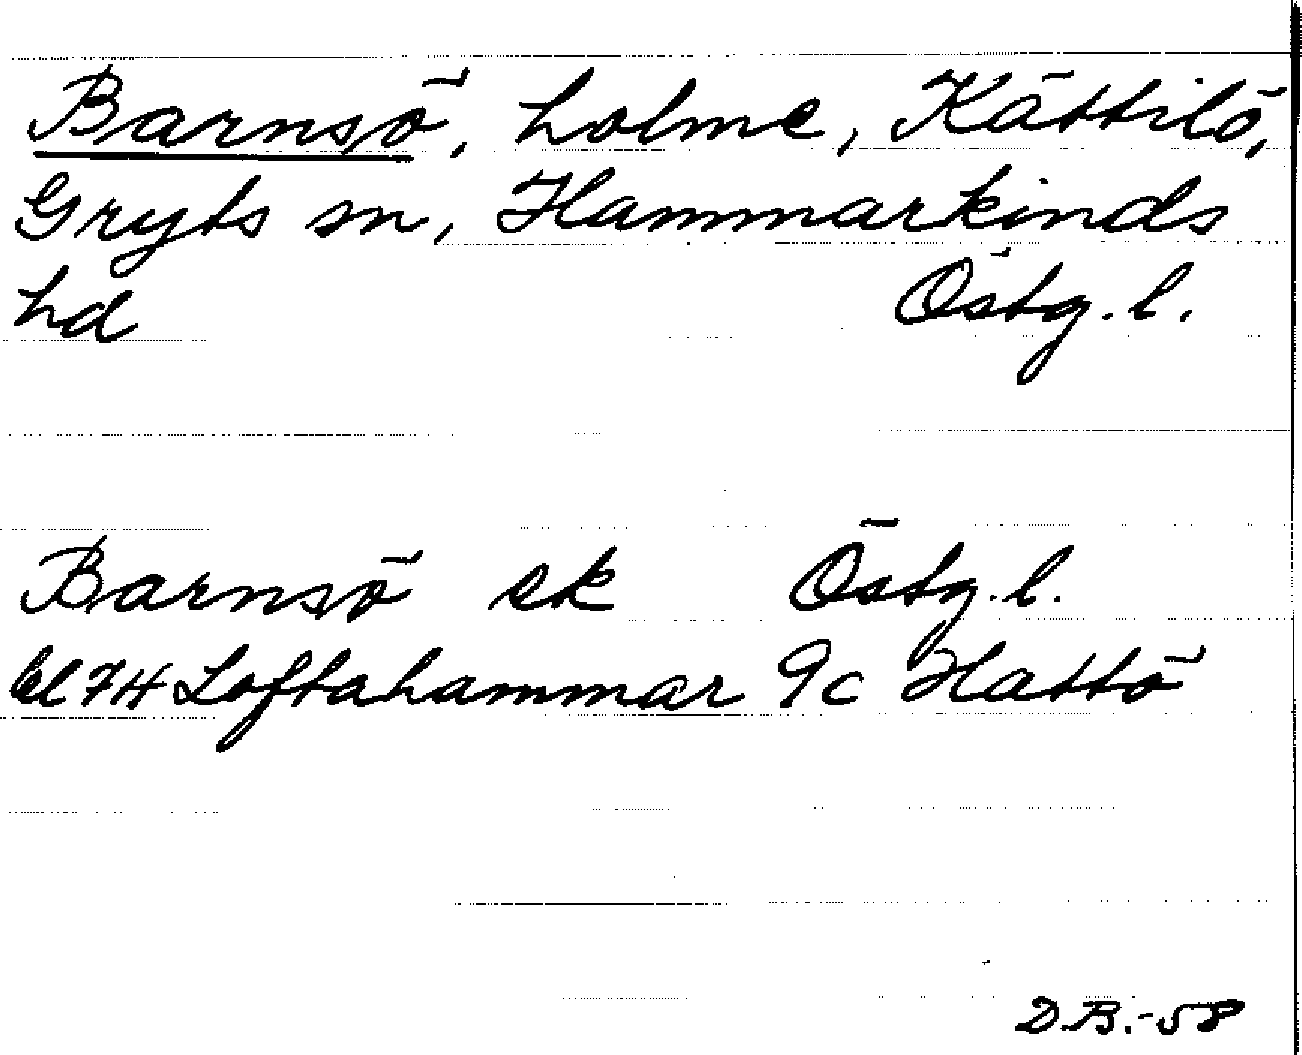 Barnsö, holme, Kättilö,
Gryts sn, Hammarkinds
hd Östg. l.
Barnsö ek Östg. l.
bl 7H Loftahammar 9c Hattö
D.B.-58